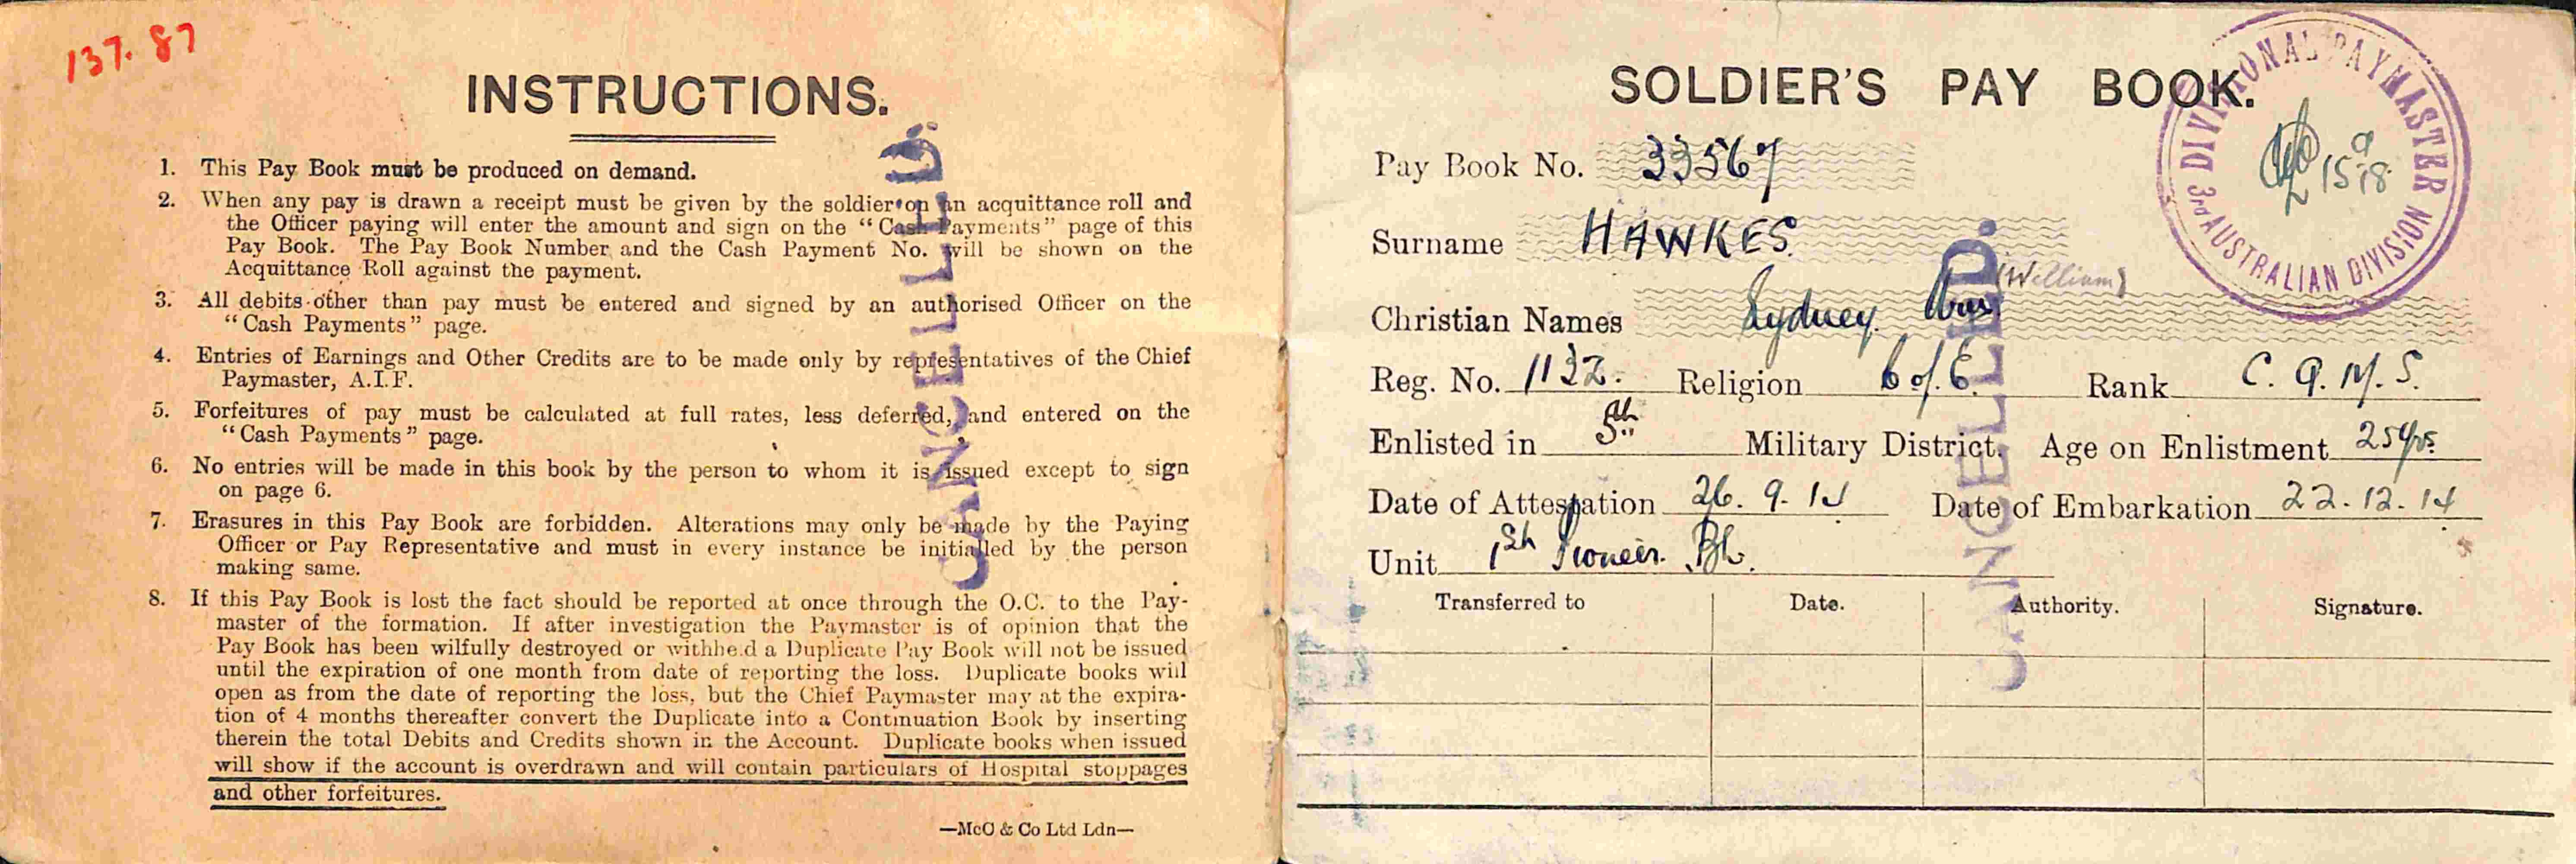 137.87
INSTRUCTIONS.
1. This Pay Book must be produced on demand.
2. When any pay is drawn a receipt must be given by the soldier on an acquittance roll and
the Officer paying will enter the amount and sign on the “Cash Payments” page of this
Pay Book. The Pay Book Number and the Cash Payment No. will be shown on the
Acquittance Roll against the payment.
3. All debits other than pay must be entered and signed by an authorised Officer on the
“Cash Payments” page.
4. Entries of Earnings and Other Credits are to be made only by representatives of the Chief
Paymaster, A.I.F.
5. Forfeitures of pay must be calculated at full rates, less deferred, and entered on the
“Cash Payments” page.
6. No entries will be made in this book by the person to whom it is issued except to sign
on page 6.
7. Erasures in this Pay Book are forbidden. Alterations may only be made by the Paying
Officer or Pay Representative and must in every instance be initialled by the person
making same.
8. If this Pay Book is lost the fact should be reported at once through the O.C. to the Pay-
master of the formation. If after investigation the Paymaster is of opinion that the
Pay Book has been wilfully destroyed or withheld a Duplicate Pay Book will not be issued
until the expiration of one month from date of reporting the loss. Duplicate books will
open as from the date of reporting the loss, but the Chief Paymaster may at the expira-
tion of 4 months thereafter convert the Duplicate into a Continuation Book by inserting
therein the total Debits and Credits shown in the Account. Duplicate books when issued
will show if the account is overdrawn and will contain particulars of Hospital stoppages
and other forfeitures.
—McC & Co Ltd Ldn—
CANCELLED.
SOLDIER'S PAY BOOK.
DIVISIONAL PAYMASTER
3rd AUSTRALIAN DIVISION
15 9 18
Pay Book No. 33567
Surname HAWKES.
(William)
Christian Names Sydney. Wm
Reg. No. 1132. Religion C of. E. Rank C. Q. M. S.
Enlisted in 5th Military District. Age on Enlistment 25 yrs
Date of Attestation 26. 9. 14 Date of Embarkation 22.12.14
Unit 1st Pioneer. Bn.
Transferred to Date. Authority. Signature.
CANCELLED.